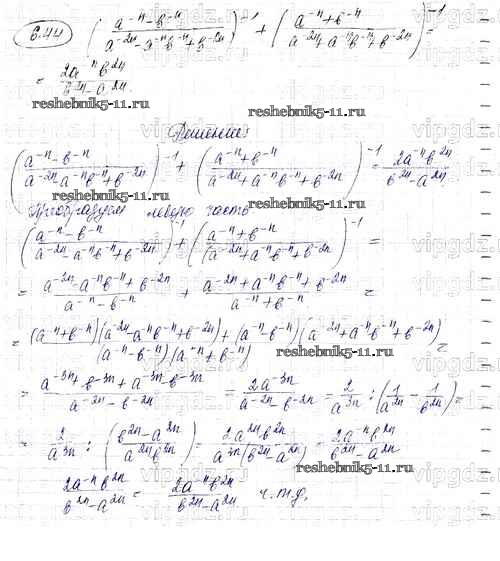 6.44 ((a⁻ⁿ-b⁻ⁿ)/(a⁻²ⁿ-a⁻ⁿb⁻ⁿ+b⁻²ⁿ))⁻¹ + ((a⁻ⁿ+b⁻ⁿ)/(a⁻²ⁿ+a⁻ⁿb⁻ⁿ+b⁻²ⁿ))⁻¹ =
= 2a⁻ⁿb²ⁿ/(b²ⁿ-a²ⁿ).
reshebnik5-11.ru
reshebnik5-11.ru
Решение:
((a⁻ⁿ-b⁻ⁿ)/(a⁻²ⁿ-a⁻ⁿb⁻ⁿ+b⁻²ⁿ))⁻¹ + ((a⁻ⁿ+b⁻ⁿ)/(a⁻²ⁿ+a⁻ⁿb⁻ⁿ+b⁻²ⁿ))⁻¹ = 2a⁻ⁿb²ⁿ/(b²ⁿ-a²ⁿ)
Преобразуем левую часть
((a⁻ⁿ-b⁻ⁿ)/(a⁻²ⁿ-a⁻ⁿb⁻ⁿ+b⁻²ⁿ))⁻¹ + ((a⁻ⁿ+b⁻ⁿ)/(a⁻²ⁿ+a⁻ⁿb⁻ⁿ+b⁻²ⁿ))⁻¹ =
= (a⁻²ⁿ-a⁻ⁿb⁻ⁿ+b⁻²ⁿ)/(a⁻ⁿ-b⁻ⁿ) + (a⁻²ⁿ+a⁻ⁿb⁻ⁿ+b⁻²ⁿ)/(a⁻ⁿ+b⁻ⁿ) =
= ((a⁻ⁿ+b⁻ⁿ)(a⁻²ⁿ-a⁻ⁿb⁻ⁿ+b⁻²ⁿ)+(a⁻ⁿ-b⁻ⁿ)(a⁻²ⁿ+a⁻ⁿb⁻ⁿ+b⁻²ⁿ))/((a⁻ⁿ-b⁻ⁿ)(a⁻ⁿ+b⁻ⁿ)) =
reshebnik5-11.ru
= (a⁻³ⁿ+b⁻³ⁿ+a⁻³ⁿ-b⁻³ⁿ)/(a⁻²ⁿ-b⁻²ⁿ) = 2a⁻³ⁿ/(a⁻²ⁿ-b⁻²ⁿ) = 2/a³ⁿ : (1/a²ⁿ - 1/b²ⁿ) =
= 2/a³ⁿ : ((b²ⁿ-a²ⁿ)/(a²ⁿb²ⁿ)) = 2a²ⁿb²ⁿ/(a³ⁿ(b²ⁿ-a²ⁿ)) = 2a⁻ⁿb²ⁿ/(b²ⁿ-a²ⁿ)
reshebnik5-11.ru
2a⁻ⁿb²ⁿ/(b²ⁿ-a²ⁿ) = 2a⁻ⁿb²ⁿ/(b²ⁿ-a²ⁿ) ч.т.д.